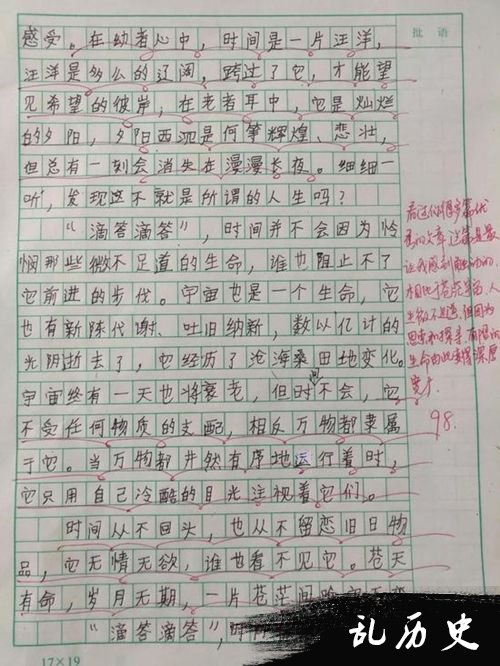 批语
感受。在幼者心中，时间是一片汪洋，
汪洋是多么的辽阔，跨过了它，才能望
见希望的彼岸，在老者耳中，它是灿烂
的夕阳，夕阳西沉是何等辉煌、悲壮，
但总有一刻会消失在漫漫长夜。细细一
听，发现这不就是所谓的人生吗？
“滴答滴答”，时间并不会因为怜
悯那些微不足道的生命，谁也阻止不了
它前进的步伐。宇宙也是一个生命，它
也有新陈代谢、吐旧纳新，数以亿计的
光阴逝去了，它经历了沧海桑田地变化。
宇宙终有一天也将衰老，但时间不会，它
不受任何物质的支配，相反万物都隶属
于它。当万物都井然有序地运行着时，
它只用自己冷酷的目光注视着它们。
时间从不回头，也从不留恋旧日物
品，它无情无欲，谁也看不见它。苍天
有命，岁月无期，一片苍茫间
“滴答滴答”，
看过你很多篇优
秀的文章，这篇是最
让我感到触动的，
相比于苍茫宇宙，人
生微不足道，但因为
思索和探寻，有限的
生命由此变得深厚
宽广。
98.
17×19
乱历史